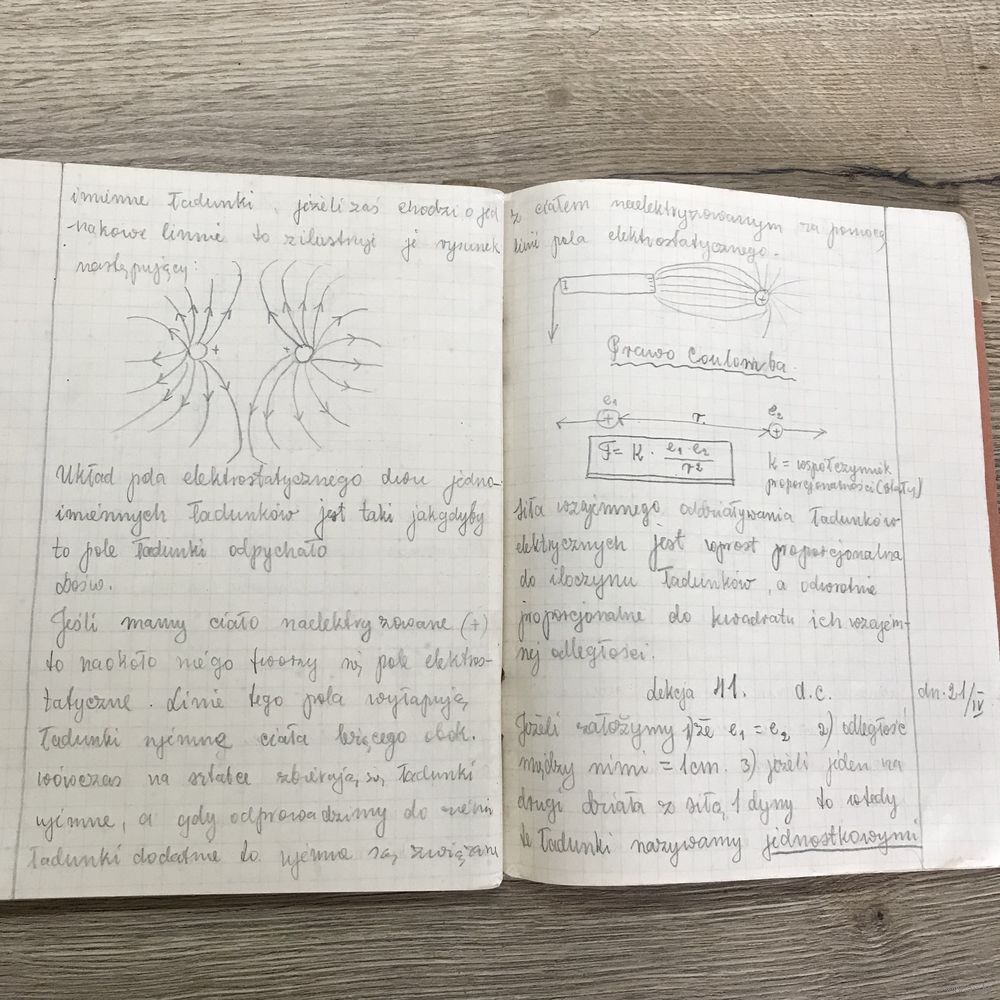 imienne ładunki, jeżeli zaś chodzi o jed
nakowe linnie to zilustruje je rysunek
następujący:
+ +
Układ pola elektrostatycznego dwu jedno-
imiennych ładunków jest taki jakgdyby
to pole ładunki odpychało
Dośw.
Jeśli mamy ciało naelektryzowane (+)
to naokoło niego tworzy się pole elektros-
tatyczne. Linie tego pola wyłapują
ładunki ujemne ciała leżącego obok.
wówczas na sztabce zbierają się ładunki
ujemne, a gdy odprowadzimy do ziemi
ładunki dodatnie to ujemne są związane
z ciałem naelektryzowanym za pomocą
linii pola elektrostatycznego.
+
Prawo Coulomba.
e1 r. e2
+ +
F = K · e1 e2 / r²
K = współczynnik
proporcjonalności (stały)
Siła wzajemnego oddziaływania ładunków
elektrycznych jest wprost proporcjonalna
do iloczynu ładunków, a odwrotnie
proporcjonalne do kwadratu ich wzajem-
nej odległości.
Lekcja 41. d.c. dn. 21/IV
Jeżeli założymy 1) że e1 = e2 2) odległość
między nimi = 1cm. 3) jeżeli jeden na
drugi działa z siłą 1 dyny to wtedy
te ładunki nazywamy jednostkowymi